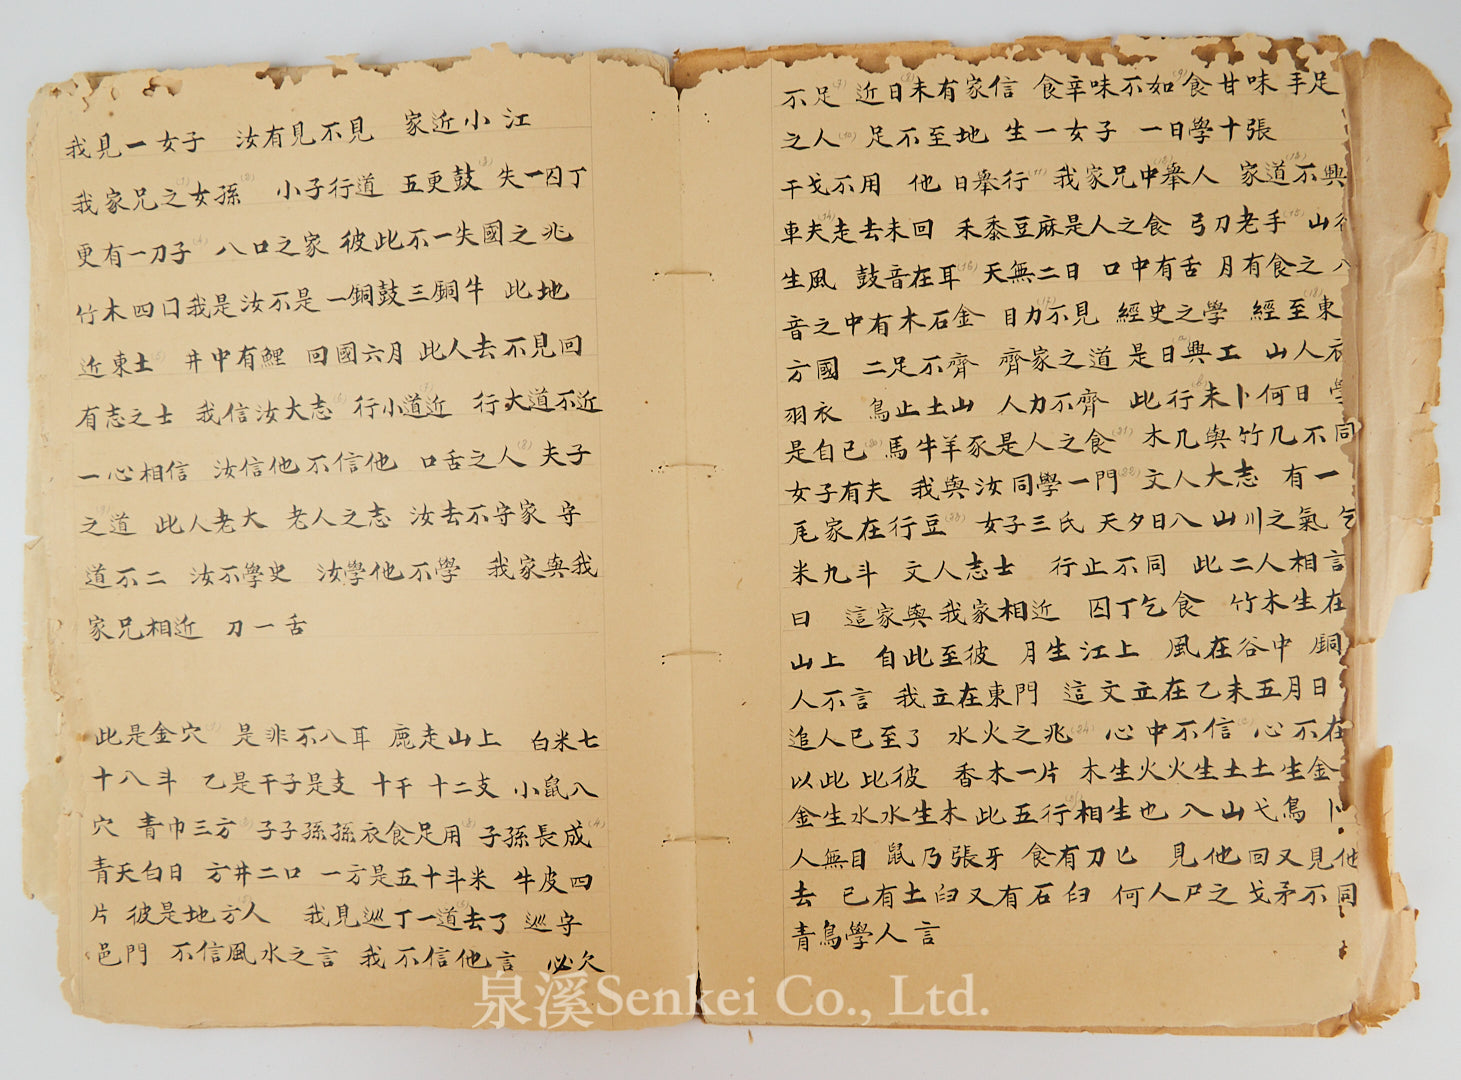 我見一女子 汝有見不見 家近小江
我家兄之(1)女孫(2) 小子行道 五更鼓(3) 失一囚丁
更有一刀子(4) 八口之家 彼此不一失國之兆
竹木四口我是汝不是一銅鼓三銅牛 此地
近東土(5) 井中有鯉 回國六月 此人去不見回
有志之士 我信汝大志(6) 行小道近(7) 行大道不近
一心相信 汝信他不信他 口舌之人(8) 夫子
之道(9) 此人老大 老人之志 汝去不守家 守
道不二 汝不學史 汝學他不學 我家與我
家兄相近 刀一舌
此是金穴(1) 是非不入耳 鹿走山上 白米七
十八斗 乙是干子是支 十干 十二支 小鼠入
穴 青巾三方(2) 子子孫孫衣食足用(3) 子孫長成(4)
青天白日 方井二口 一方是五十斗米 牛皮四
片 彼是地方(5)人 我見巡丁一道(6)去了 巡守
邑門 不信風水之言 我不信他言 必欠
不足(7) 近日(8)未有家信 食辛味不如(9)食甘味 手足
之人(10) 足不至地 生一女子 一日學十張
干戈不用 他日舉行(11) 我家兄中(12)舉人 家道(13)不興
車夫(14)走去未回 禾黍豆麻是人之食 弓刀老手(15) 山谷
生風 鼓音在耳(16) 天無二日 口中有舌 月有食之 八
音之中有木石金 目力(17)不見 經史之學 經至(18)東
方國 二足不齊 齊家之道 是日興工 山人衣
羽衣 鳥止土山 人力不齊 此行未卜何日 學
是自己(20) 馬牛羊豕是人之食(21) 木几與竹几不同
女子有夫 我與汝同學一門(22) 文人大志 有一
尾家在行豆(23) 女子三氏 天夕日入 山川之氣 乞
米九斗 文人志士 行止不同 此二人相言
曰 這家與我家相近 囚丁乞食 竹木生在
山上 自此至彼 月生江上 風在谷中 銅
人不言 我立在東門 這文立在乙未五月日
追人已至了 水火之兆(24) 心中不信 心不在
以此比彼 香木一片 木生火火生土土生金
金生水水生木 此五行相生也 入山弋鳥 卜
人無目 鼠乃張牙 食有刀匕 見他回又見他
去 已有土臼又有石臼 何人尸之 戈矛不同
青鳥學人言
泉溪Senkei Co., Ltd.